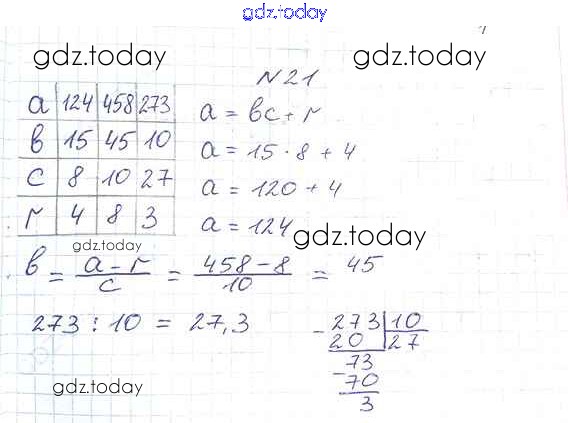 gdz.today
gdz.today gdz.today
N21
a 124 458 273
в 15 45 10
c 8 10 27
r 4 8 3
a = вc + r
a = 15 · 8 + 4
a = 120 + 4
a = 124
gdz.today
gdz.today
в = a - r / c = 458 - 8 / 10 = 45
273 : 10 = 27,3
- 273 | 10
20 | 27
- 73
70
3
gdz.today
gdz.today